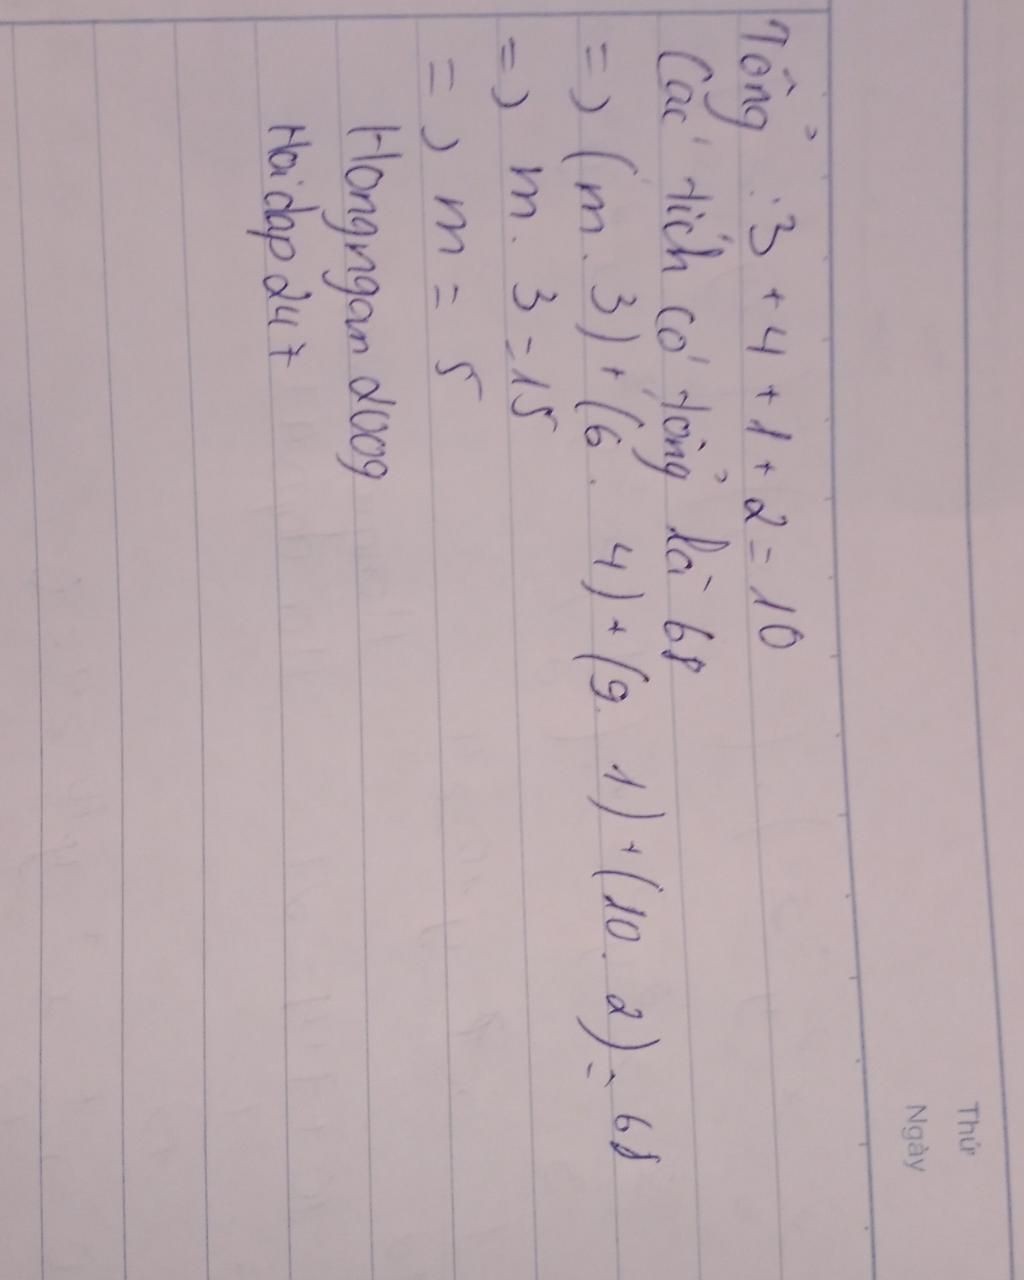 Thứ
Ngày
Tổng : 3 + 4 + 1 + 2 = 10
Các tích có tổng là 68
=) (m. 3) + (6. 4) + (9. 1) + (10. 2) = 68
=) m. 3 = 15
=) m = 5
Hongngan2009
Hoidap247